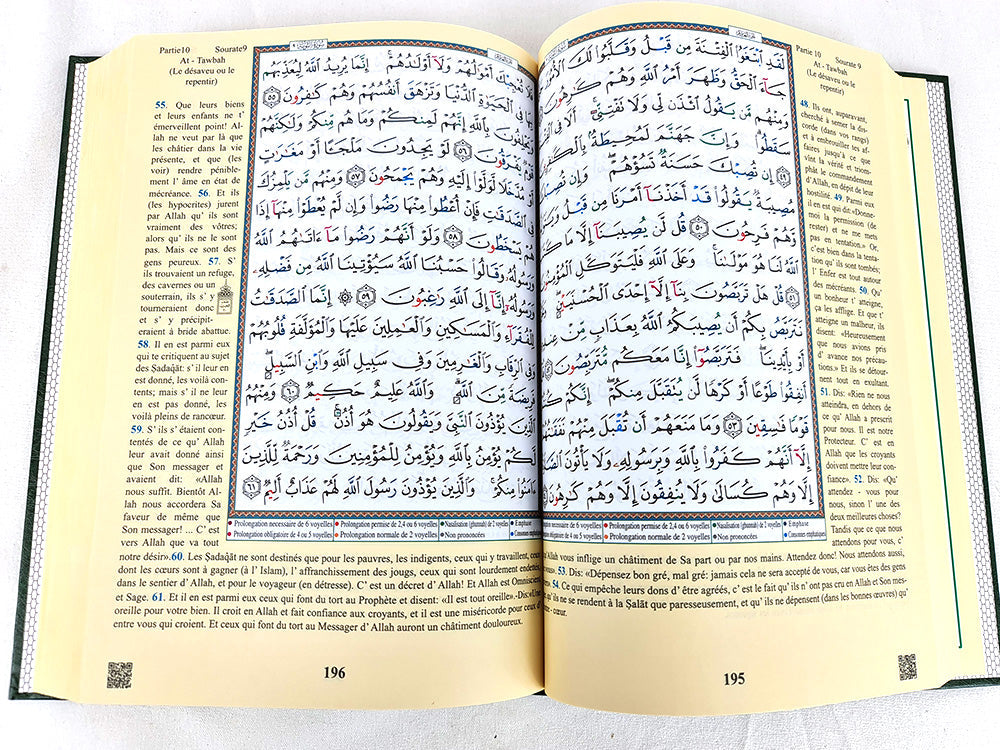 Partie 10 Sourate 9
At - Tawbah
(Le désaveu ou le
repentir)
لَقَدِ ٱبْتَغَوُا۟ ٱلْفِتْنَةَ مِن قَبْلُ وَقَلَّبُوا۟ لَكَ
جَآءَ ٱلْحَقُّ وَظَهَرَ أَمْرُ ٱللَّهِ وَهُمْ كَٰرِهُونَ
وَمِنْهُم مَّن يَقُولُ ٱئْذَن لِّى وَلَا تَفْتِنِّىٓ أَلَا فِى
سَقَطُوا۟ وَإِنَّ جَهَنَّمَ لَمُحِيطَةٌۢ
إِن تُصِبْكَ حَسَنَةٌ تَسُؤْهُمْ وَإِن
مُصِيبَةٌ يَقُولُوا۟ قَدْ أَخَذْنَآ أَمْرَنَا مِن قَبْلُ
وَّهُمْ فَرِحُونَ ٥٠ قُل لَّن يُصِيبَنَآ إِلَّا مَا
ٱللَّهُ لَنَا هُوَ مَوْلَىٰنَا وَعَلَى ٱللَّهِ فَلْيَتَوَكَّلِ
٥١ قُلْ هَلْ تَرَبَّصُونَ بِنَآ إِلَّآ إِحْدَى ٱلْحُسْنَيَيْنِ
نَتَرَبَّصُ بِكُمْ أَن يُصِيبَكُمُ ٱللَّهُ بِعَذَابٍ مِّنْ
أَوْ بِأَيْدِينَا فَتَرَبَّصُوٓا۟ إِنَّا مَعَكُم مُّتَرَبِّصُونَ
أَنفِقُوا۟ طَوْعًا أَوْ كَرْهًا لَّن يُتَقَبَّلَ مِنكُمْ إِنَّكُمْ
قَوْمًا فَٰسِقِينَ ٥٣ وَمَا مَنَعَهُمْ أَن تُقْبَلَ مِنْهُمْ
إِلَّآ أَنَّهُمْ كَفَرُوا۟ بِٱللَّهِ وَبِرَسُولِهِۦ وَلَا يَأْتُونَ
إِلَّا وَهُمْ كُسَالَىٰ وَلَا يُنفِقُونَ إِلَّا وَهُمْ كَٰرِهُونَ
48. Ils ont, auparavant,
cherché à semer la dis-
corde (dans vos rangs)
et à embrouiller tes af-
faires jusqu'à ce que
vint la vérité et triom-
phât le commandement
d'Allah, en dépit de leur
hostilité. 49. Parmi eux
il en est qui dit: «Donne-
moi la permission (de
rester) et ne me mets
pas en tentation.» Or,
c'est bien dans la tenta-
tion qu' ils sont tombés;
l' Enfer est tout autour
des mécréants. 50. Qu'
un bonheur t' atteigne,
ça les afflige. Et que t'
atteigne un malheur, ils
disent: «Heureusement
que nous avions pris
d' avance nos précau-
tions.» Et ils se détour-
nent tout en exultant.
51. Dis: «Rien ne nous
atteindra, en dehors de
ce qu' Allah a prescrit
pour nous. Il est notre
Protecteur. C' est en
Allah que les croyants
doivent mettre leur con-
fiance». 52. Dis: «Qu'
attendez - vous pour
nous, sinon l' une des
deux meilleures choses?
Tandis que ce que nous
attendons pour vous, c'
necessaire de 6 voyelles Prolongation permise de 2,4 ou 6 voyelles Nasalisation (ghunnah) de 2 voyelles Emphase
obligatoire de 4 ou 5 voyelles Prolongation normale de 2 voyelles Non prononcées
Allah vous inflige un châtiment de Sa part ou par nos mains. Attendez donc! Nous attendons aussi,
53. Dis: «Dépensez bon gré, mal gré: jamais cela ne sera accepté de vous, car vous êtes des
54. Ce qui empêche leurs dons d' être agréés, c' est le fait qu' ils n' ont pas cru en Allah et Son mes-
ils ne se rendent à la Ṣalāt que paresseusement, et qu' ils ne dépensent (dans les bonnes œuvres) qu'
cœur.
195
Partie10 Sourate9
At - Tawbah
(Le désaveu ou le
repentir)
فَلَا تُعْجِبْكَ أَمْوَٰلُهُمْ وَلَآ أَوْلَٰدُهُمْ إِنَّمَا يُرِيدُ ٱللَّهُ لِيُعَذِّبَهُم
بِهَا فِى ٱلْحَيَوٰةِ ٱلدُّنْيَا وَتَزْهَقَ أَنفُسُهُمْ وَهُمْ كَٰفِرُونَ ٥٥
وَيَحْلِفُونَ بِٱللَّهِ إِنَّهُمْ لَمِنكُمْ وَمَا هُم مِّنكُمْ وَلَٰكِنَّهُمْ
قَوْمٌ يَفْرَقُونَ ٥٦ لَوْ يَجِدُونَ مَلْجَـًٔا أَوْ مَغَٰرَٰتٍ
أَوْ مُدَّخَلًا لَّوَلَّوْا۟ إِلَيْهِ وَهُمْ يَجْمَحُونَ ٥٧ وَمِنْهُم مَّن يَلْمِزُكَ
فِى ٱلصَّدَقَٰتِ فَإِنْ أُعْطُوا۟ مِنْهَا رَضُوا۟ وَإِن لَّمْ يُعْطَوْا۟ مِنْهَآ إِذَا
هُمْ يَسْخَطُونَ ٥٨ وَلَوْ أَنَّهُمْ رَضُوا۟ مَآ ءَاتَىٰهُمُ ٱللَّهُ
وَرَسُولُهُۥ وَقَالُوا۟ حَسْبُنَا ٱللَّهُ سَيُؤْتِينَا ٱللَّهُ مِن فَضْلِهِۦ
وَرَسُولُهُۥٓ إِنَّآ إِلَى ٱللَّهِ رَٰغِبُونَ ٥٩ ۞ إِنَّمَا ٱلصَّدَقَٰتُ
لِلْفُقَرَآءِ وَٱلْمَسَٰكِينِ وَٱلْعَٰمِلِينَ عَلَيْهَا وَٱلْمُؤَلَّفَةِ قُلُوبُهُمْ
وَفِى ٱلرِّقَابِ وَٱلْغَٰرِمِينَ وَفِى سَبِيلِ ٱللَّهِ وَٱبْنِ ٱلسَّبِيلِ
فَرِيضَةً مِّنَ ٱللَّهِ وَٱللَّهُ عَلِيمٌ حَكِيمٌ ٦٠ وَمِنْهُمُ
ٱلَّذِينَ يُؤْذُونَ ٱلنَّبِىَّ وَيَقُولُونَ هُوَ أُذُنٌ قُلْ أُذُنُ خَيْرٍ
لَّكُمْ يُؤْمِنُ بِٱللَّهِ وَيُؤْمِنُ لِلْمُؤْمِنِينَ وَرَحْمَةٌ لِّلَّذِينَ
ءَامَنُوا۟ مِنكُمْ وَٱلَّذِينَ يُؤْذُونَ رَسُولَ ٱللَّهِ لَهُمْ عَذَابٌ أَلِيمٌ ٦١
55. Que leurs biens
et leurs enfants ne t'
émerveillent point! Al-
lah ne veut par là que
les châtier dans la vie
présente, et que (les
voir) rendre pénible-
ment l' âme en état de
mécréance. 56. Et ils
(les hypocrites) jurent
par Allah qu' ils sont
vraiment des vôtres;
alors qu' ils ne le sont
pas. Mais ce sont des
gens peureux. 57. S'
ils trouvaient un refuge,
des cavernes ou un
souterrain, ils s' y
tourneraient donc
et s' y précipit-
eraient à bride abattue.
58. Il en est parmi eux
qui te critiquent au sujet
des Ṣadaqāt: s' il leur en
est donné, les voilà con-
tents; mais s' il ne leur
en est pas donné, les
voilà pleins de rancœur.
59. S' ils s' étaient con-
tentés de ce qu' Allah
leur avait donné ainsi
que Son messager et
avaient dit: «Allah
nous suffit. Bientôt Al-
lah nous accordera Sa
faveur de même que
Son messager! ... C' est
vers Allah que va tout
Prolongation necessaire de 6 voyelles Prolongation permise de 2,4 ou 6 voyelles Nasalisation (ghunnah) de 2 voyelles Emphase
Prolongation obligatoire de 4 ou 5 voyelles Prolongation normale de 2 voyelles Non prononcées Consonnes emphatiques
notre désir».60. Les Ṣadaqāt ne sont destinés que pour les pauvres, les indigents, ceux qui y travaillent, ceux
dont les cœurs sont à gagner (à l' Islam), l' affranchissement des jougs, ceux qui sont lourdement endettés,
dans le sentier d' Allah, et pour le voyageur (en détresse). C' est un décret d' Allah! Et Allah est Omniscient
et Sage. 61. Et il en est parmi eux ceux qui font du tort au Prophète et disent: «Il est tout oreille».-Dis:«Une
oreille pour votre bien. Il croit en Allah et fait confiance aux croyants, et il est une miséricorde pour ceux d'
entre vous qui croient. Et ceux qui font du tort au Messager d' Allah auront un châtiment douloureux.
196